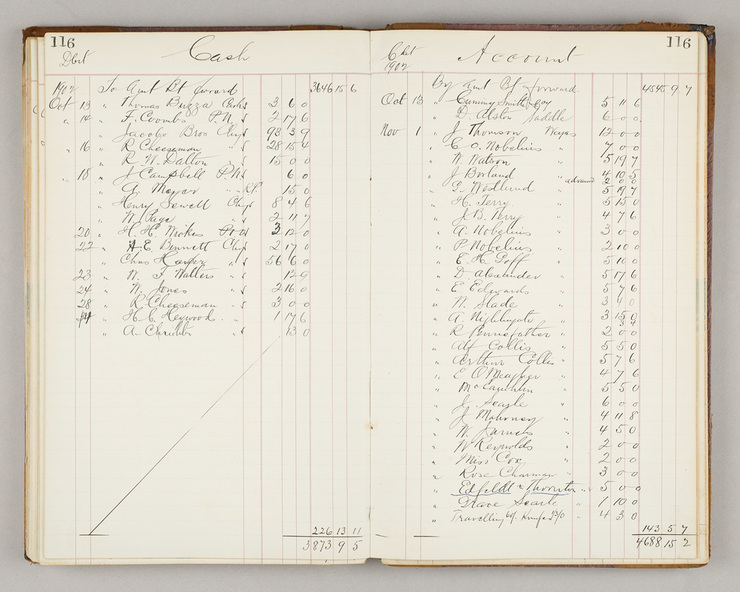 116
Dbt
Cash
1902 To Amt Bt forward 3646 15 6
Oct 13 " Thomas Bugga 3 6 0
" 14 " F. Coombs P.N. 2 17 6
" Jacobs Bros Chqs 93 3 9
" 16 " R Cheeseman " 28 15 6
" R. W. Dalton " 15 0 0
" 18 " J Campbell P.N. 6 0
" A. Meyer 15 0
" Henry Sewell Chqs 8 4 6
" W. Page " 2 11 7
20 " H. H. Mickes 3 12 0
22 " A E. Bennett Chqs 2 17 0
" Chas " 56 6 0
23 " W. J. Walters " 12 9
24 " W. Jones " 2 16 0
28 " R Cheeseman " 3 0 0
" H. C. Heywood " 1 17 6
" A. " 13 0
226 13 11
3873 9 5
116
Account
1902
By Amt Bt forward 4545 9 7
Oct 13 " Cumming Smith & Coy 5 11 6
" D. Alston Saddle 6 0 0
Nov 1 " J Thomson Wages 12 0 0
" C. O. Nobelius " 7 0 0
" W Watson " 5 19 7
" J Borland " 4 10 5
" G. Westlund " advanced 5 19 7
" H. Terry " 5 15 0
" J. B. Terry " 4 7 6
" A. Nobelius " 3 0 0
" P. Nobelius " 2 10 0
" E. H. Goff " 5 10 0
" D Alexander " 5 17 6
" E Edwards " 5 7 6
" W. Slade "
" A. Nightingale " 3 15 0
" R Pennefather " 2 0 0
" Alf Collis " 5 5 0
" Arthur Collis " 5 7 6
" E O'Meagher " 4 7 6
" McLaughlin " 5 5 0
" J. Searle " 6 0 0
" J. Mahoney " 4 11 8
" W. " 4 5 0
" W Reynolds " 2 0 0
" Miss Cox " 2 0 0
" Rose Charman " 3 0 0
" Edfeldt & Thornton " 5 0 0
" Grace Searle " 1 10 0
" Travelling 4 3 0
143 5 7
4688 15 2